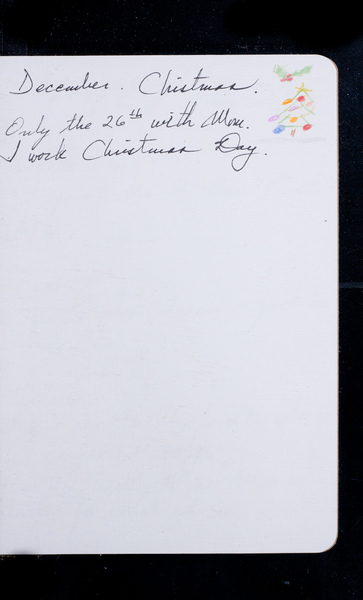 December. Christmas.
Only the 26th with Mom.
I work Christmas Day.